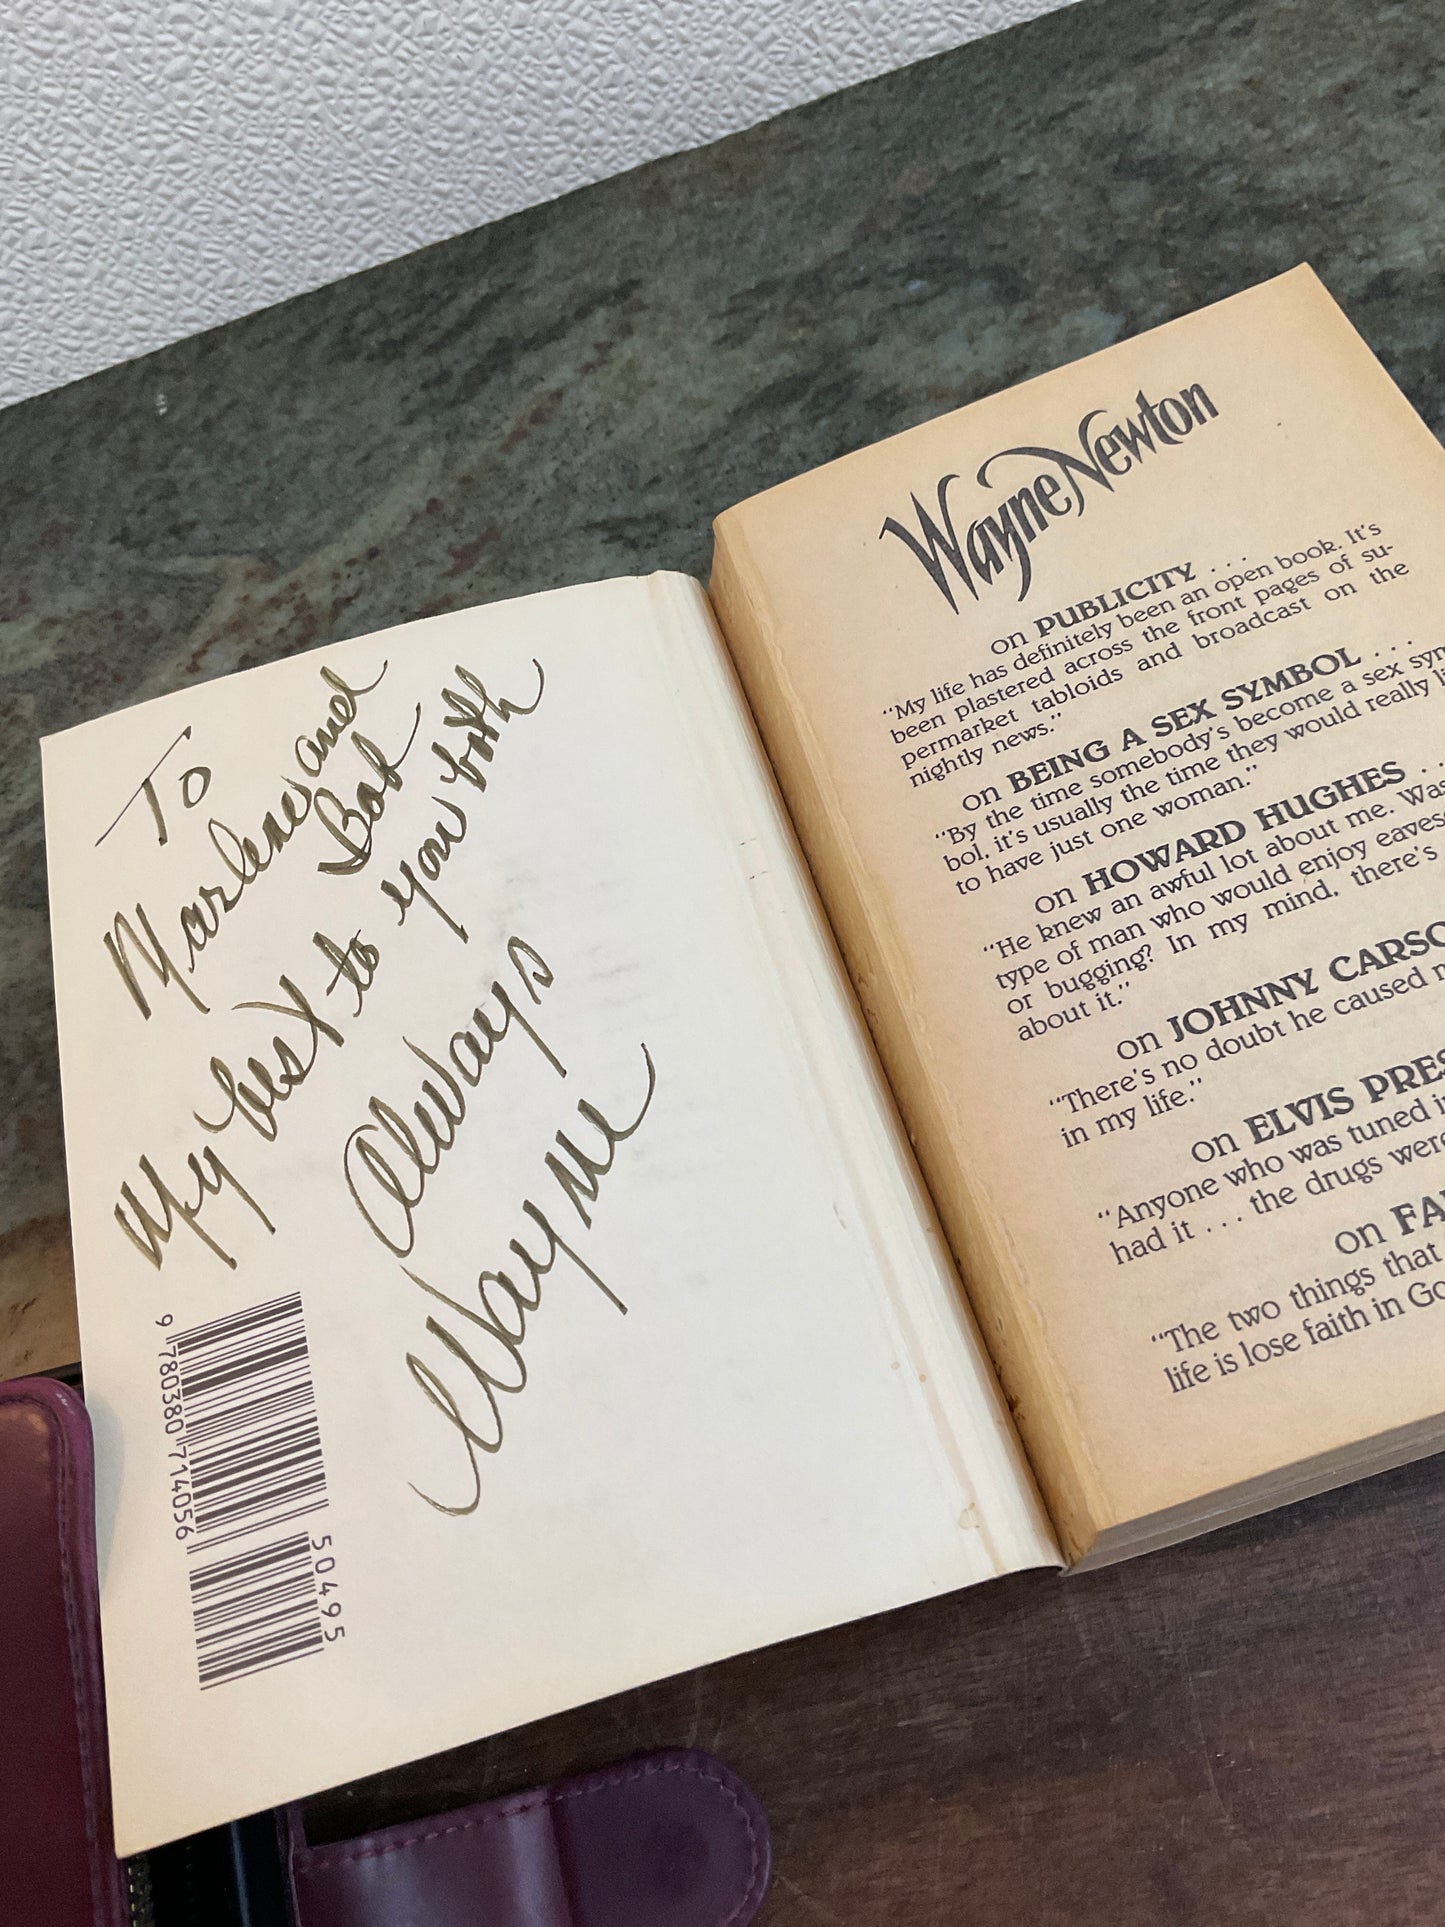 To
Marlene and
Bob
My best to you both
Always
Wayne
9 780380 714056
50495
Wayne Newton
on PUBLICITY . . .
"My life has definitely been an open book. It's
been plastered across the front pages of su-
permarket tabloids and broadcast on the
nightly news."
on BEING A SEX SYMBOL . . .
"By the time somebody's become a sex sym
bol, it's usually the time they would really li
to have just one woman."
on HOWARD HUGHES . .
"He knew an awful lot about me. Was
type of man who would enjoy eaves
or bugging? In my mind, there's
about it."
on JOHNNY CARSO
"There's no doubt he caused m
in my life."
on ELVIS PRES
"Anyone who was tuned i
had it . . . the drugs were
on FA
"The two things that
life is lose faith in Go